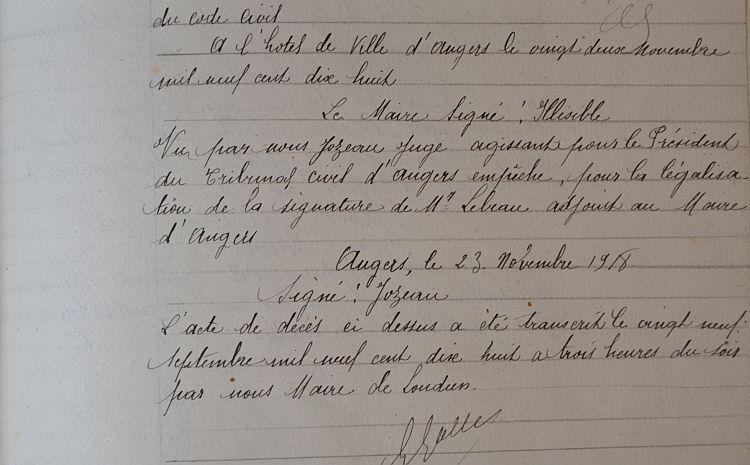 du code civil
A l'hôtel de Ville d'Angers le vingt deux novembre
mil neuf cent dix huit
Le Maire Signé : Illisible
Vu par nous Jozeau Juge agissant pour le Président
du Tribunal civil d'Angers empêché, pour la légalisa
tion de la signature de Mr Lebeau adjoint au Maire
d'Angers
Angers, le 23 Novembre 1918
Signé : Jozeau
L'acte de décès ci dessus a été transcrit le vingt neuf
septembre mil neuf cent dix huit a trois heures du soir
par nous Maire de Loudun.